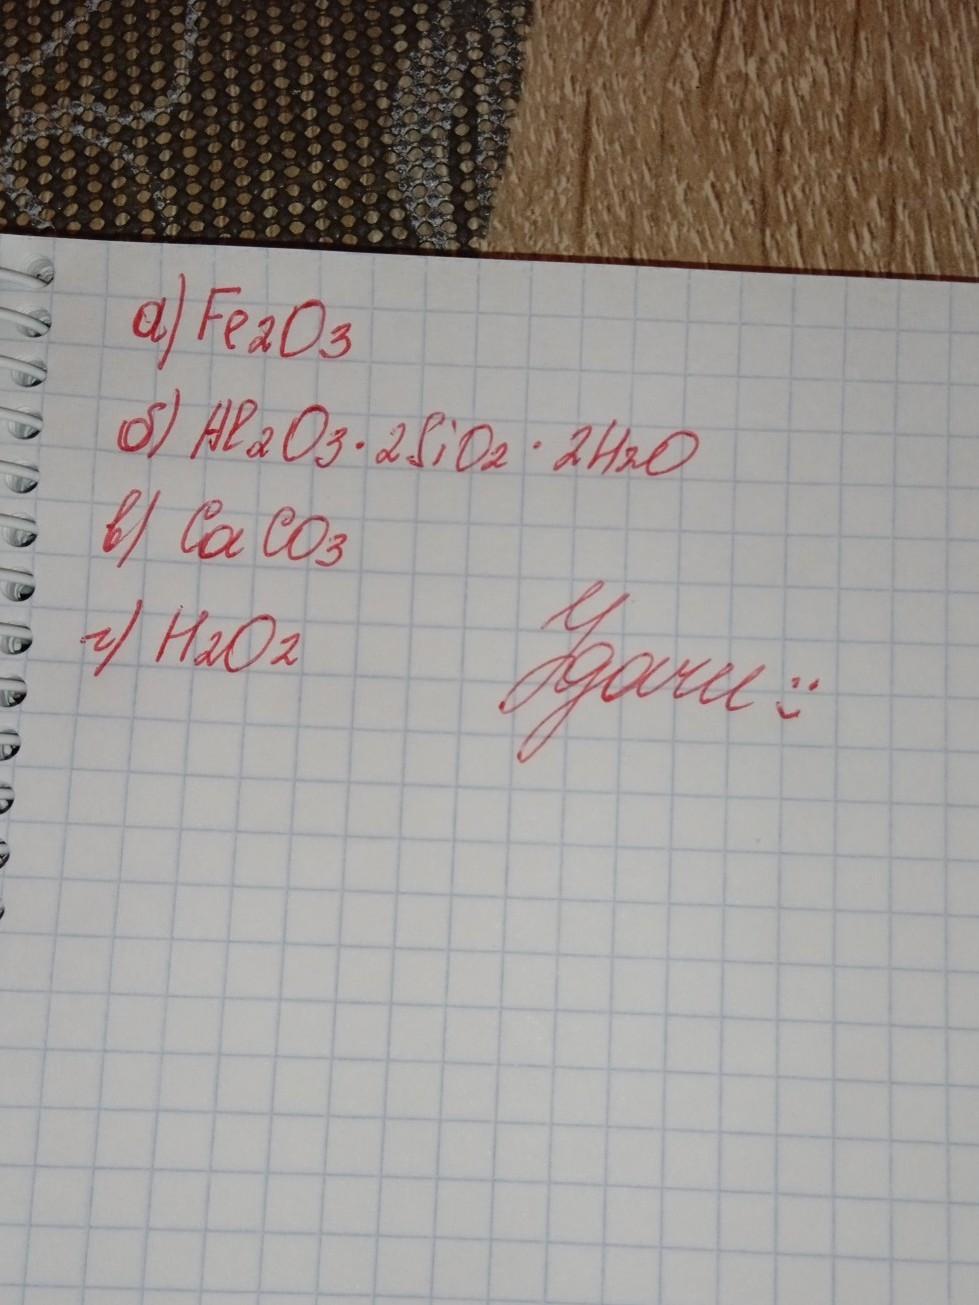 а) Fe2O3
б) Al2O3 · 2SiO2 · 2H2O
в) CaCO3
г) H2O2
Удачи :)